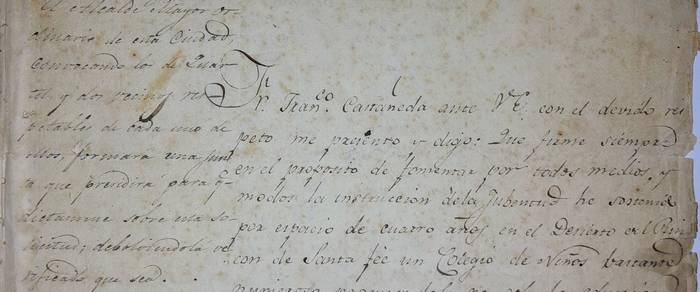 El Alcalde Mayor or-
dinario de esta Ciudad,
Convocando los de Quar-
tel, y dos vecinos res-
petables de cada uno de
ellos, formará una Jun-
ta que prendirá para q.
dictamine sobre esta so-
licitud; debolviendola ve-
rificado que sea.
Fr. Fran.co Castañeda ante V.E. con el devido res
peto me presento y digo: Que firme siempre
en el proposito de fomentar por todos medios, y
modos la instruccion dela Jubentud he sostenido
por espacio de cuatro años en el Decierto del Rin
con de Santa fée un Colegio de Niños bastante
numeroso
la educacion